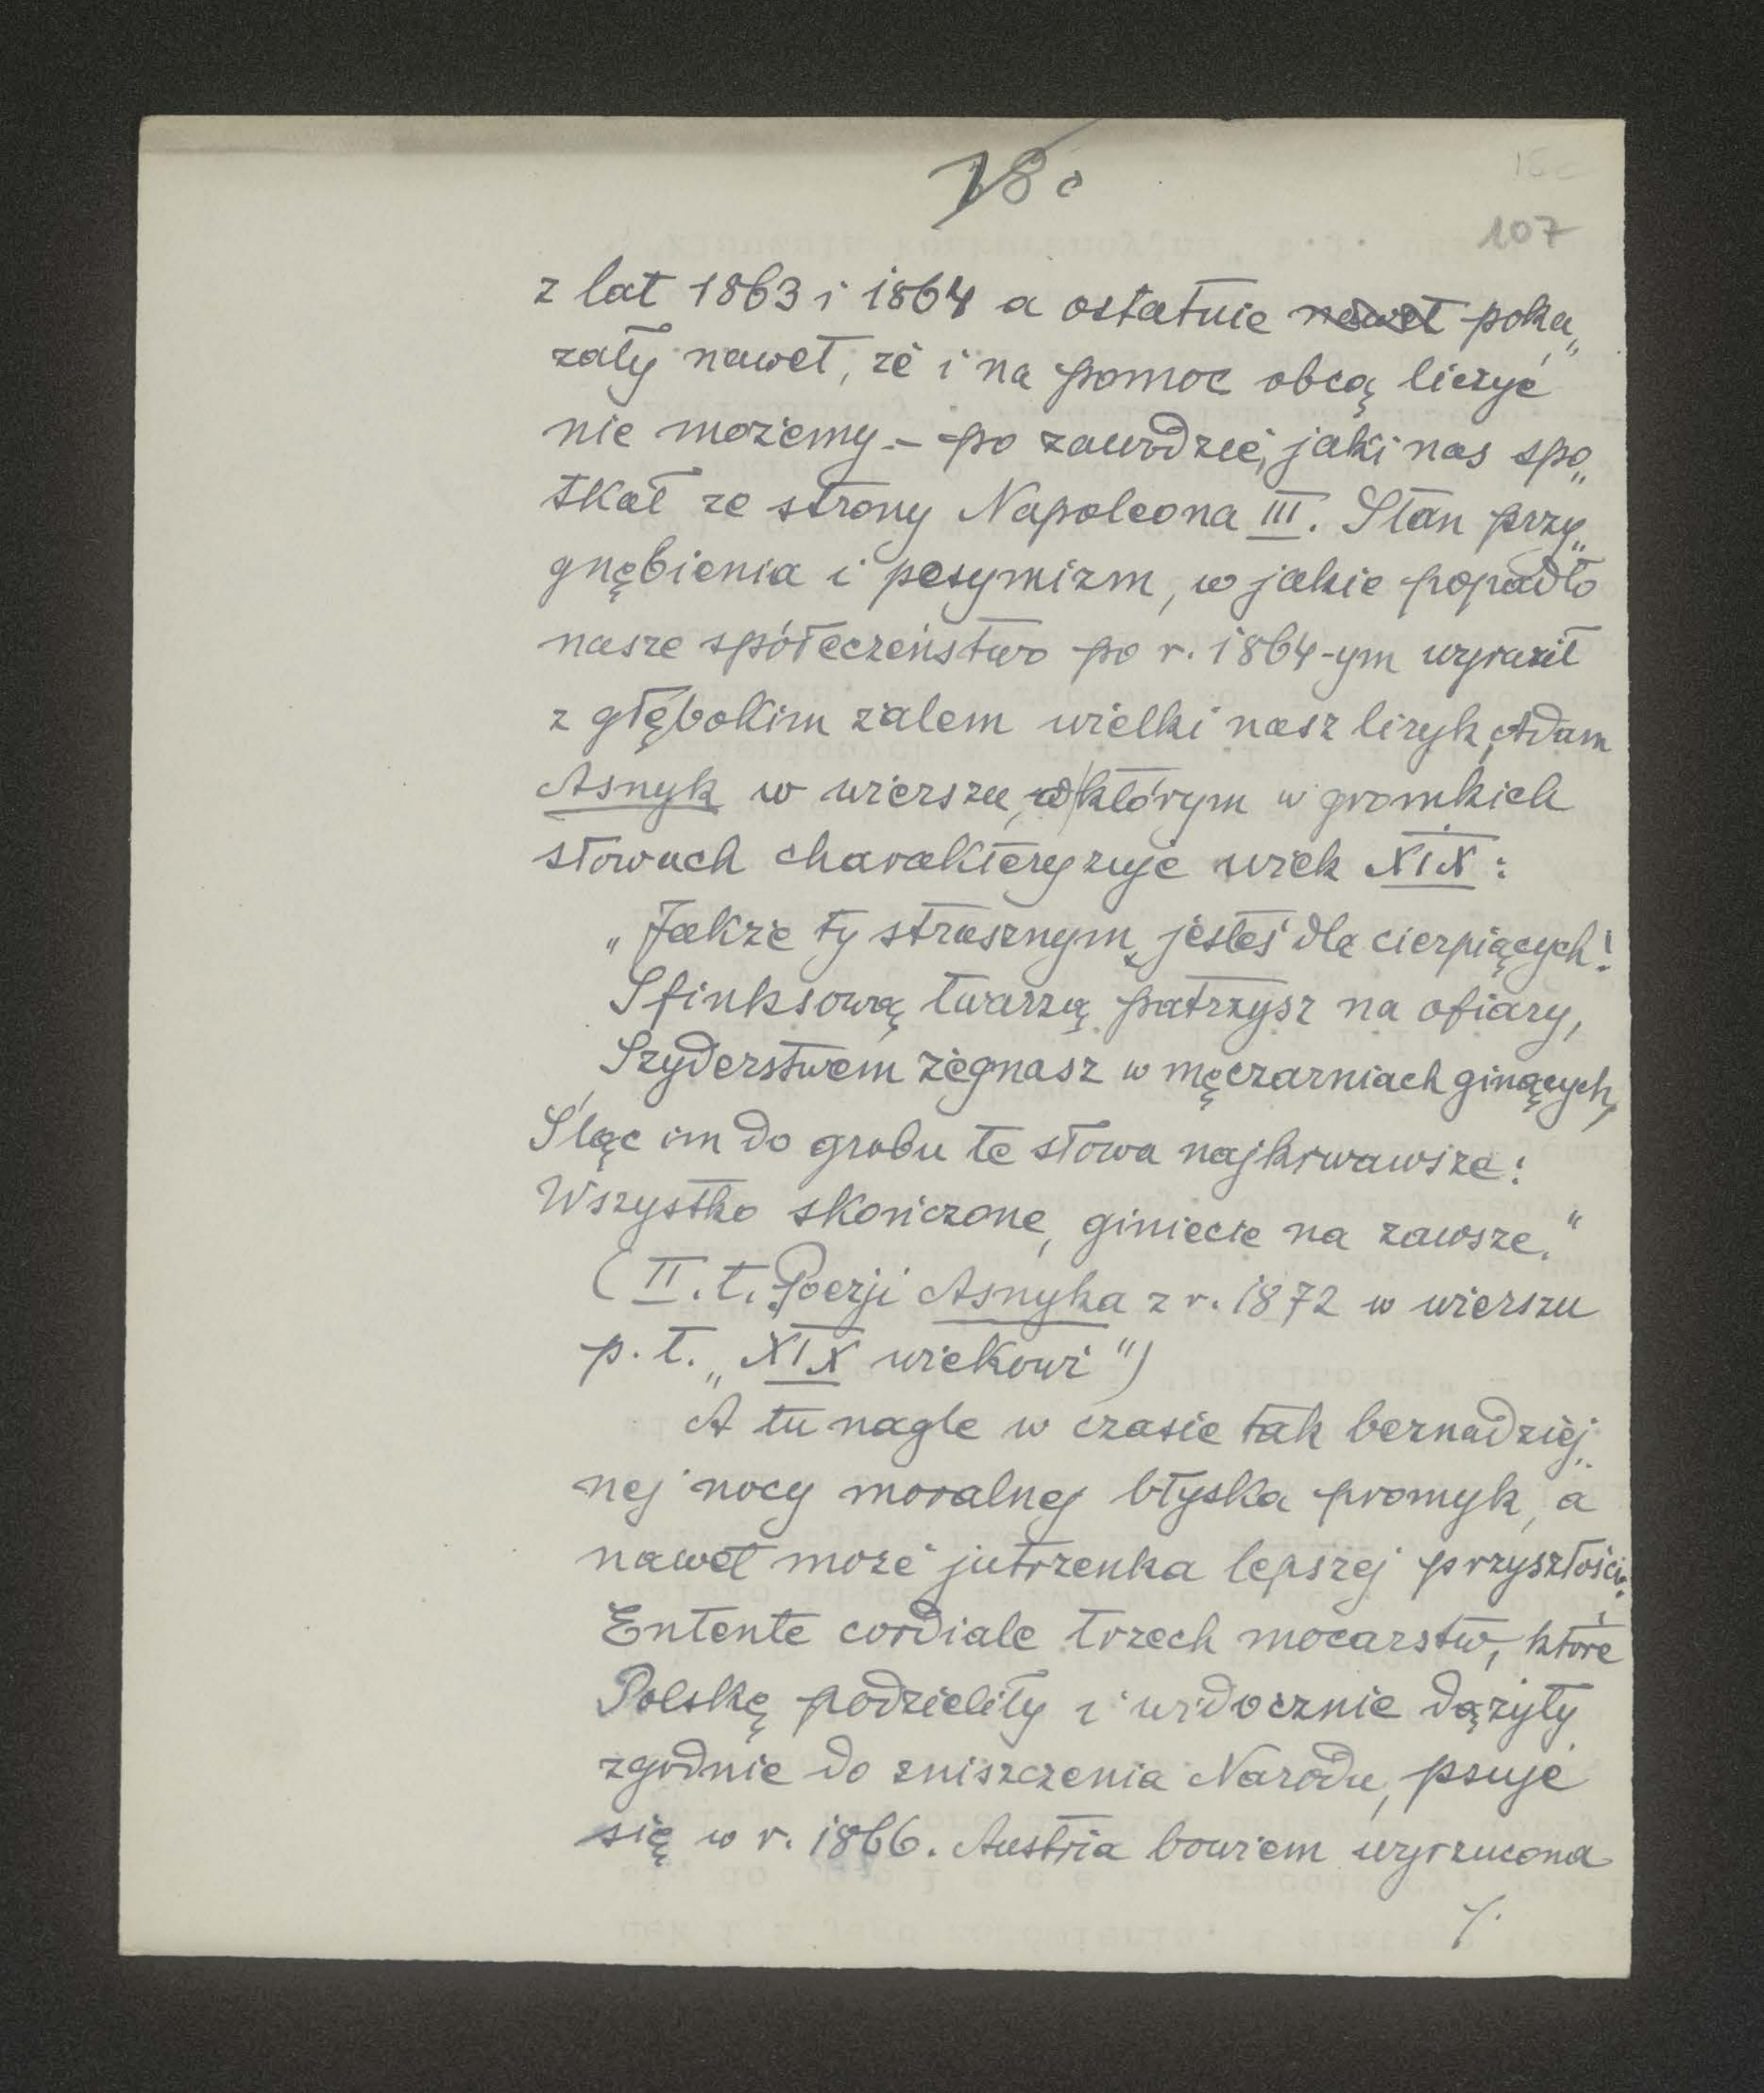 18 c
18 c
107
z lat 1863 i 1864 a ostatnie nawet poka„
zały nawet, że i na pomoc obcą liczyć
nie możemy – po zawodzie, jaki nas spo„
tkał ze strony Napoleona III. Stan przy„
gnębienia i pesymizm, w jakie popadło
nasze spółeczeństwo po r. 1864-ym wyraził
z głębokim żalem wielki nasz liryk, Adam
Asnyk w wierszu, w którym w gromkich
słowach charakteryzuje wiek XIX:
„Jakże ty strasznym jesteś dla cierpiących!
Sfinksową twarzą patrzysz na ofiary,
Szyderstwem żegnasz w męczarniach ginących,
Śląc im do grobu te słowa najkrwawsze:
Wszystko skończone, giniecie na zawsze."
(II. t. Poezji Asnyka z r. 1872 w wierszu
p. t. „XIX wiekowi")
A tu nagle w czasie tak beznadziej„
nej nocy moralnej błyska promyk, a
nawet może jutrzenka lepszej przyszłości.
Entente cordiale trzech mocarstw, które
Polskę podzieliły i widocznie dążyły
zgodnie do zniszczenia Narodu, psuje
się w r. 1866. Austria bowiem wyrzucona
/.